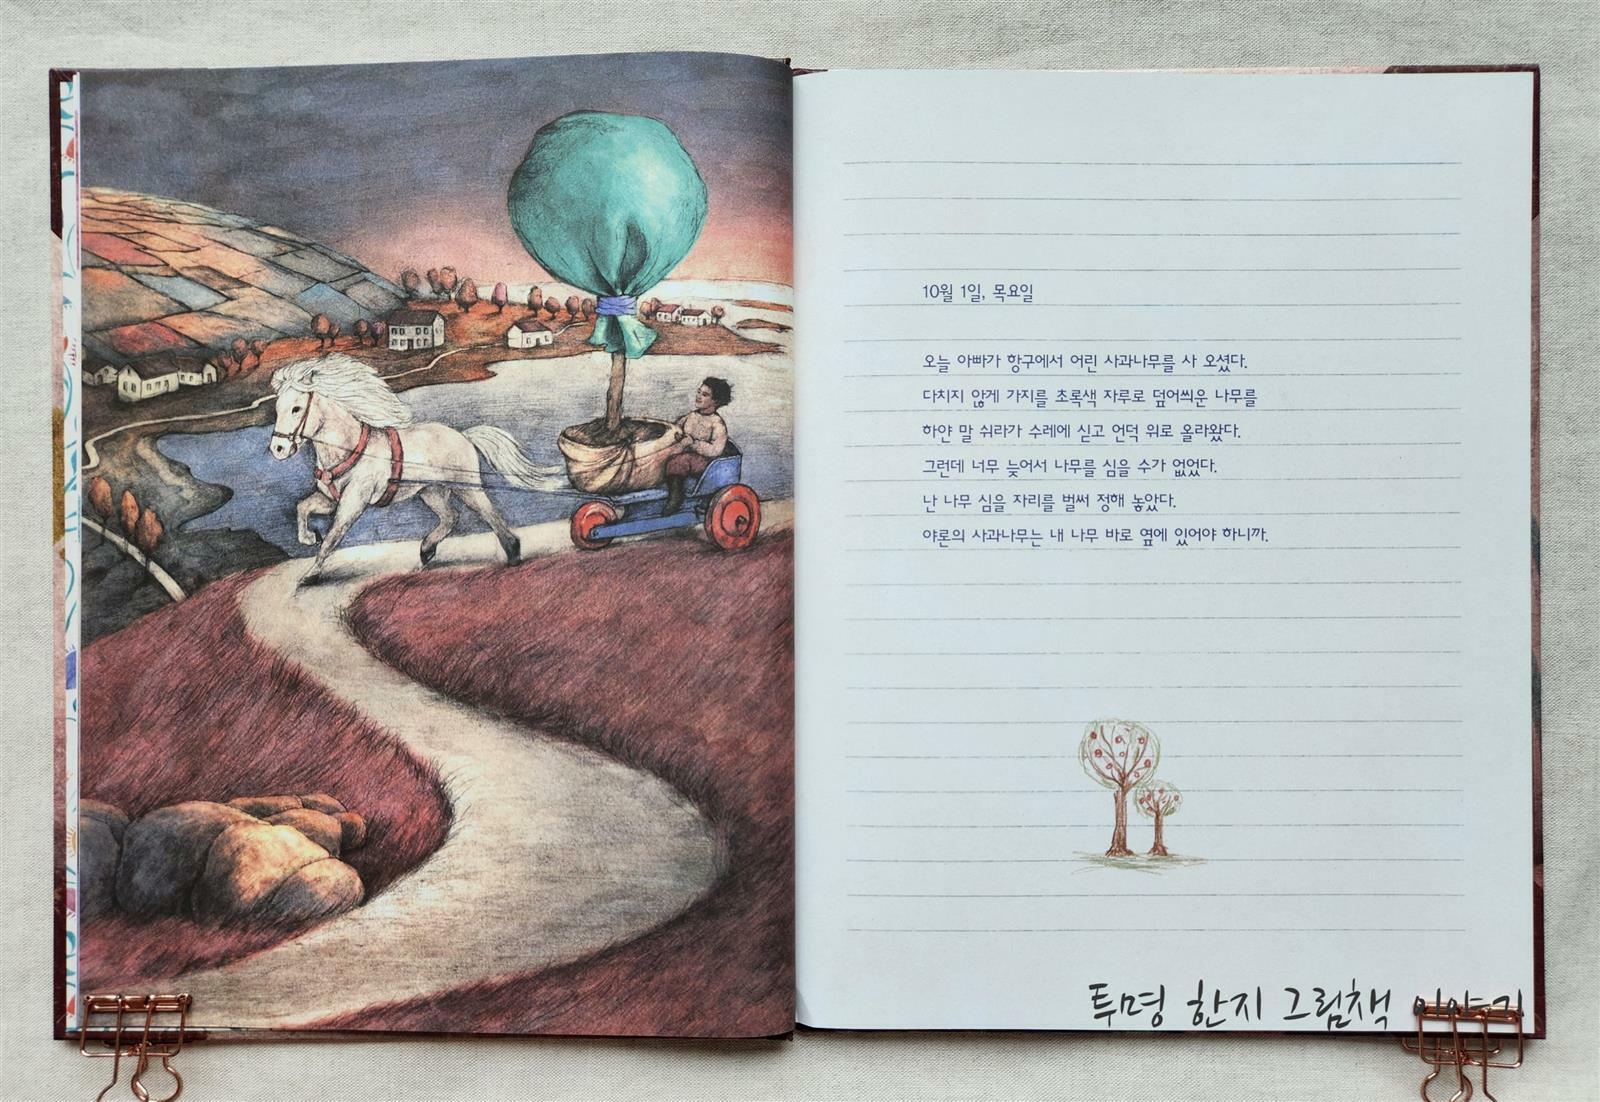 10월 1일, 목요일
오늘 아빠가 항구에서 어린 사과나무를 사 오셨다.
다치지 않게 가지를 초록색 자루로 덮어씌운 나무를
하얀 말 쉬라가 수레에 싣고 언덕 위로 올라왔다.
그런데 너무 늦어서 나무를 심을 수가 없었다.
난 나무 심을 자리를 벌써 정해 놓았다.
야론의 사과나무는 내 나무 바로 옆에 있어야 하니까.
투명 한지 그림책 이야기